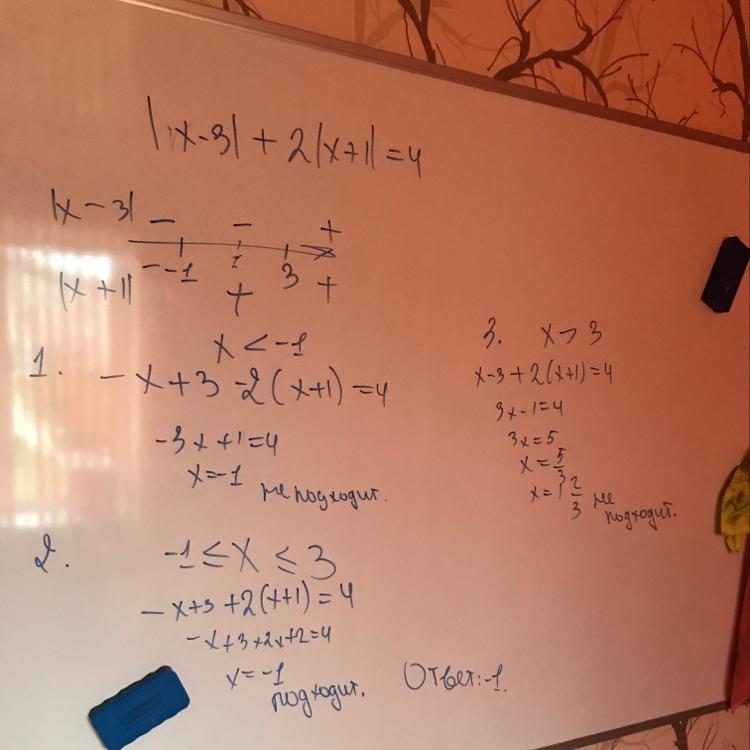 |x-3| + 2|x+1| = 4
|x-3| - - +
-1 3
|x+1| - + +
1. x < -1
-x+3 -2(x+1) = 4
-3x+1=4
x=-1 не подходит.
2. -1 ≤ x ≤ 3
-x+3 +2(x+1) = 4
-x+3+2x+2=4
x=-1
подходит.
3. x > 3
x-3+2(x+1)=4
3x-1=4
3x=5
x=5/3
x=1 2/3 не
подходит.
Ответ:-1.